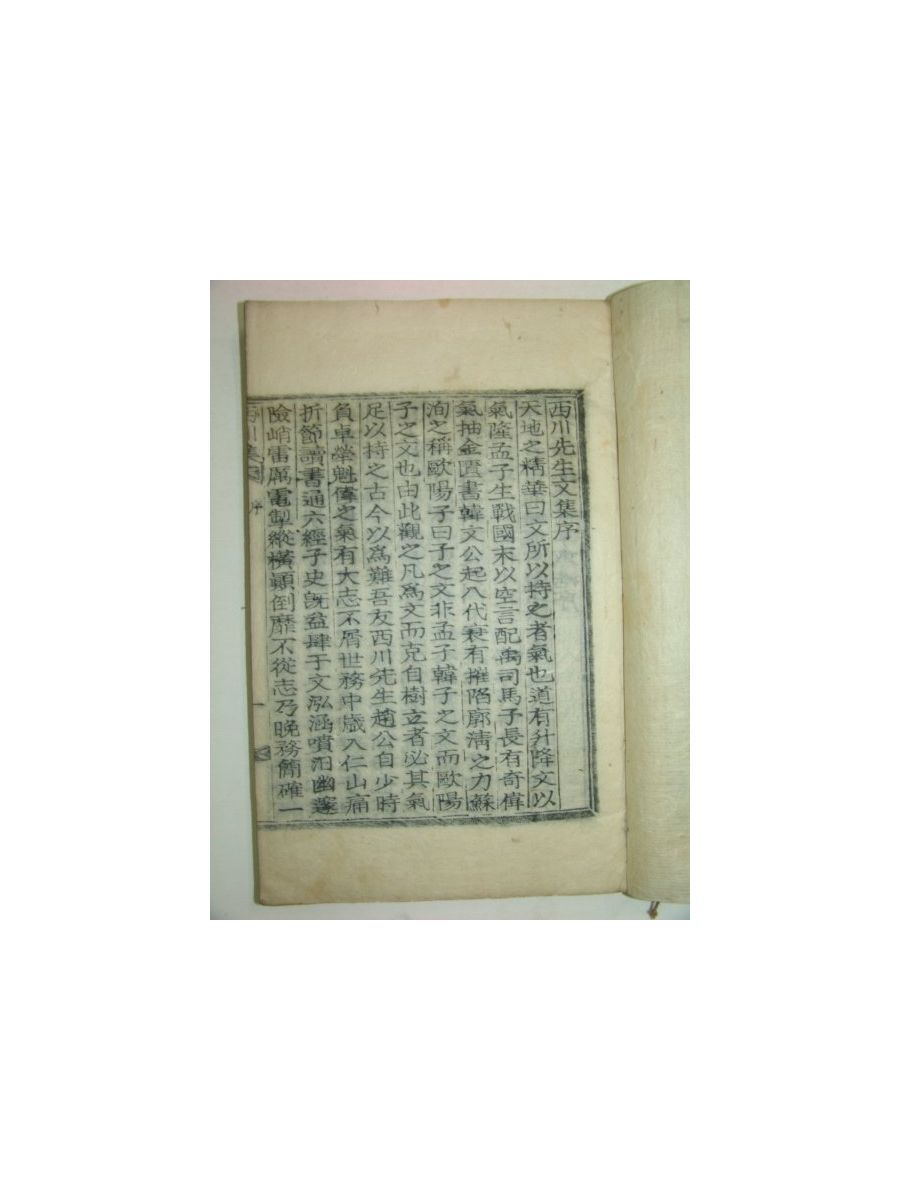 西川先生文集序
天地之精華曰文所以持之者氣也道有升降文以
氣隆孟子生戰國末以空言配禹司馬子長有奇偉
氣抽金匱書韓文公起八代衰有摧陷廓淸之力蘇
洵之稱歐陽子曰子之文非孟子韓子之文而歐陽
子之文也由此觀之凡爲文而克自樹立者必其氣
足以持之古今以爲難吾友西川先生趙公自少時
負卓犖魁偉之氣有大志不屑世務中歲入仁山痛
折節讀書通六經子史旣益肆于文泓涵噴汨幽邃
險峭雷厲電掣縱橫顚倒靡不從志乃晩務簡確一
西川集 序 一